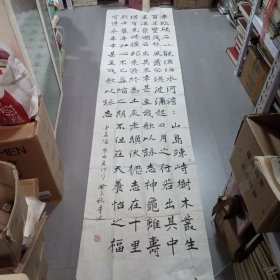 東臨碣石以觀滄海水河澹：山島竦峙樹木叢生
百草豐茂秋風蕭瑟洪波湧起日月之行若出其中
星漢燦爛若出其里幸甚至哉歌以詠志神龜雖壽
猶有竟時騰蛇乘霧終為土灰老驥伏櫪志在千里
烈士暮年壯心不已盈縮之期不但在天養怡之福
可得永年幸甚至哉歌以詠志
MEN